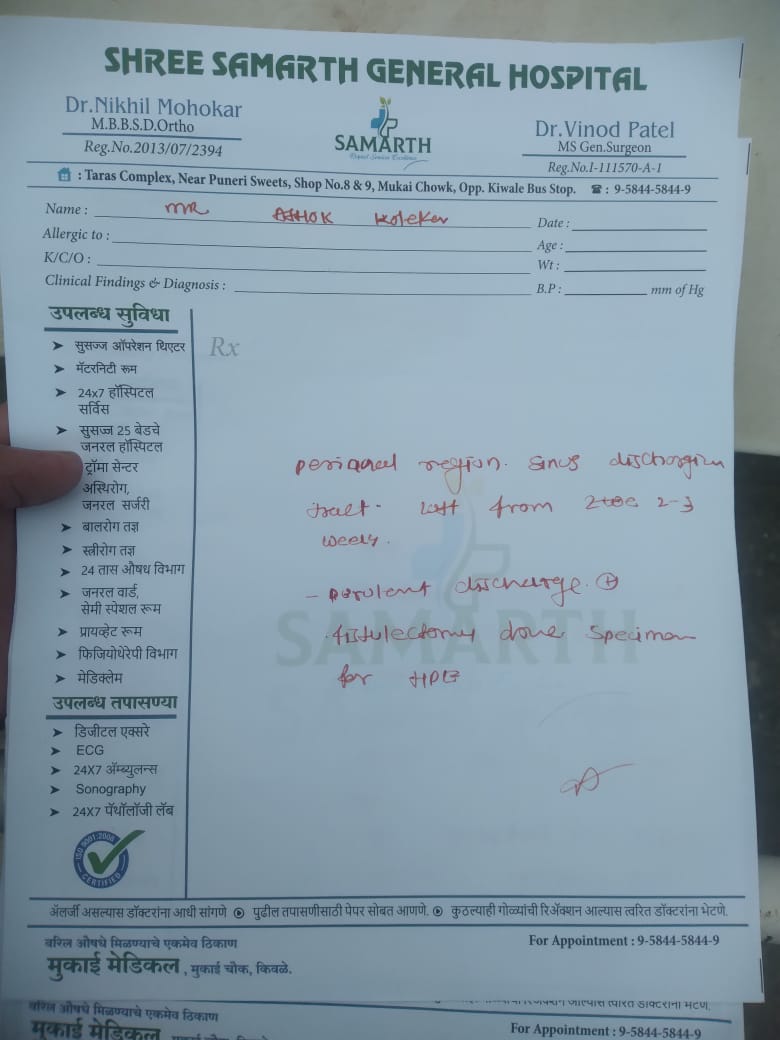 SHREE SAMARTH GENERAL HOSPITAL
Dr.Nikhil Mohokar
M.B.B.S.D.Ortho
Reg.No.2013/07/2394
SAMARTH
Dr.Vinod Patel
MS Gen.Surgeon
Reg.No.I-111570-A-1
: Taras Complex, Near Puneri Sweets, Shop No.8 & 9, Mukai Chowk, Opp. Kiwale Bus Stop. ☎ : 9-5844-5844-9
Name : MR ASHOK Kolekar
Date :
Allergic to :
Age :
K/C/O :
Wt :
Clinical Findings & Diagnosis :
B.P : mm of Hg
उपलब्ध सुविधा
Rx
➤ सुसज्ज ऑपरेशन थिएटर
➤ मॅटरनिटी रूम
➤ 24x7 हॉस्पिटल
सर्विस
➤ सुसज्ज 25 बेडचे
जनरल हॉस्पिटल
ट्रॉमा सेन्टर
अस्थिरोग,
जनरल सर्जरी
➤ बालरोग तज्ञ
➤ स्त्रीरोग तज्ञ
➤ 24 तास औषध विभाग
➤ जनरल वार्ड,
सेमी स्पेशल रूम
➤ प्रायव्हेट रूम
➤ फिजियोथेरेपी विभाग
➤ मेडिक्लेम
उपलब्ध तपासण्या
➤ डिजीटल एक्सरे
➤ ECG
➤ 24X7 ॲम्ब्युलन्स
➤ Sonography
➤ 24X7 पॅथॉलॉजी लॅब
perianal region. sinus
from 2-3
- discharge. +
fistulectomy done specimen
for HPE
SAMARTH
ISO 9001:2008
CERTIFIED
ॲलर्जी असल्यास डॉक्टरांना आधी सांगणे ⦿ पुढील तपासणीसाठी पेपर सोबत आणणे. ⦿ कुठल्याही गोळ्यांची रिॲक्शन आल्यास त्वरित डॉक्टरांना भेटणे.
वरिल औषधे मिळण्याचे एकमेव ठिकाण
For Appointment : 9-5844-5844-9
मुकाई मेडिकल , मुकाई चौक, किवळे.
वरिल औषधे मिळण्याचे एकमेव ठिकाण
त्वरित डॉक्टरांना भेटणे.
मुकाई मेडिकल
For Appointment : 9-5844-5844-9